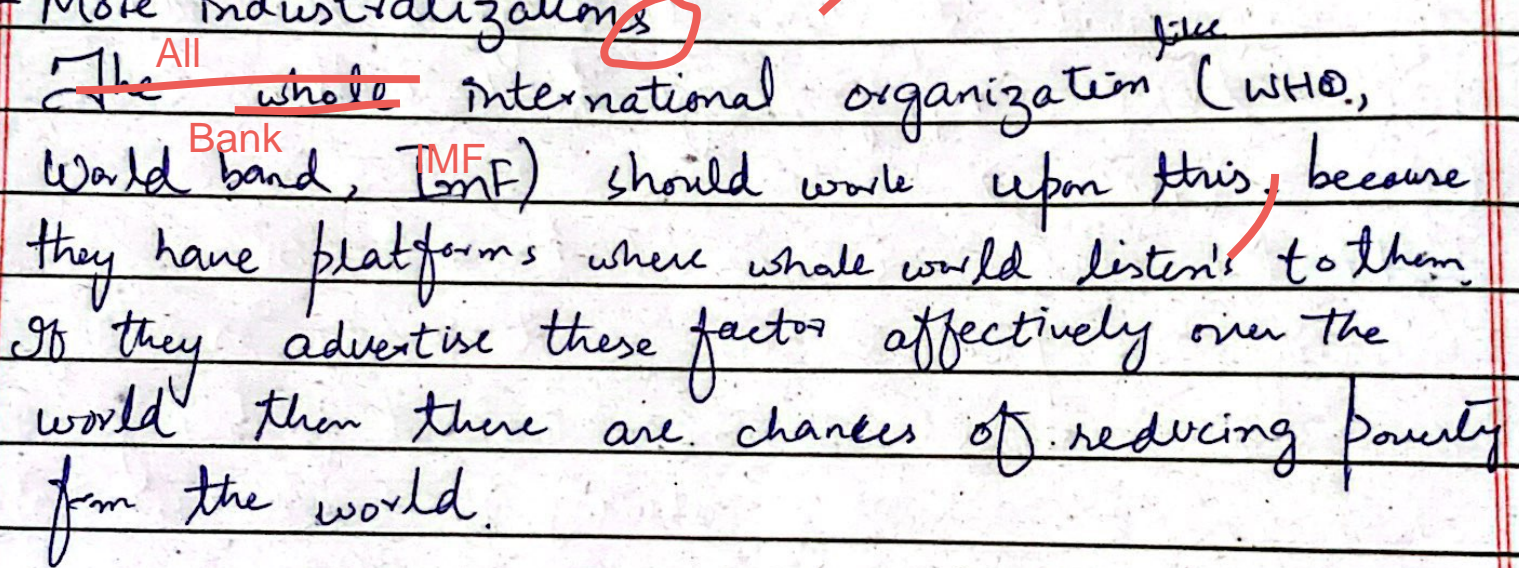 More industralizations
All
like
The whole international organization (WHO.,
Bank
IMF
World band, ImF) should work upon this, because
they have platforms where whole world listen's to them.
If they advertise these factor affectively over the
world then there are chances of reducing poverty
from the world.